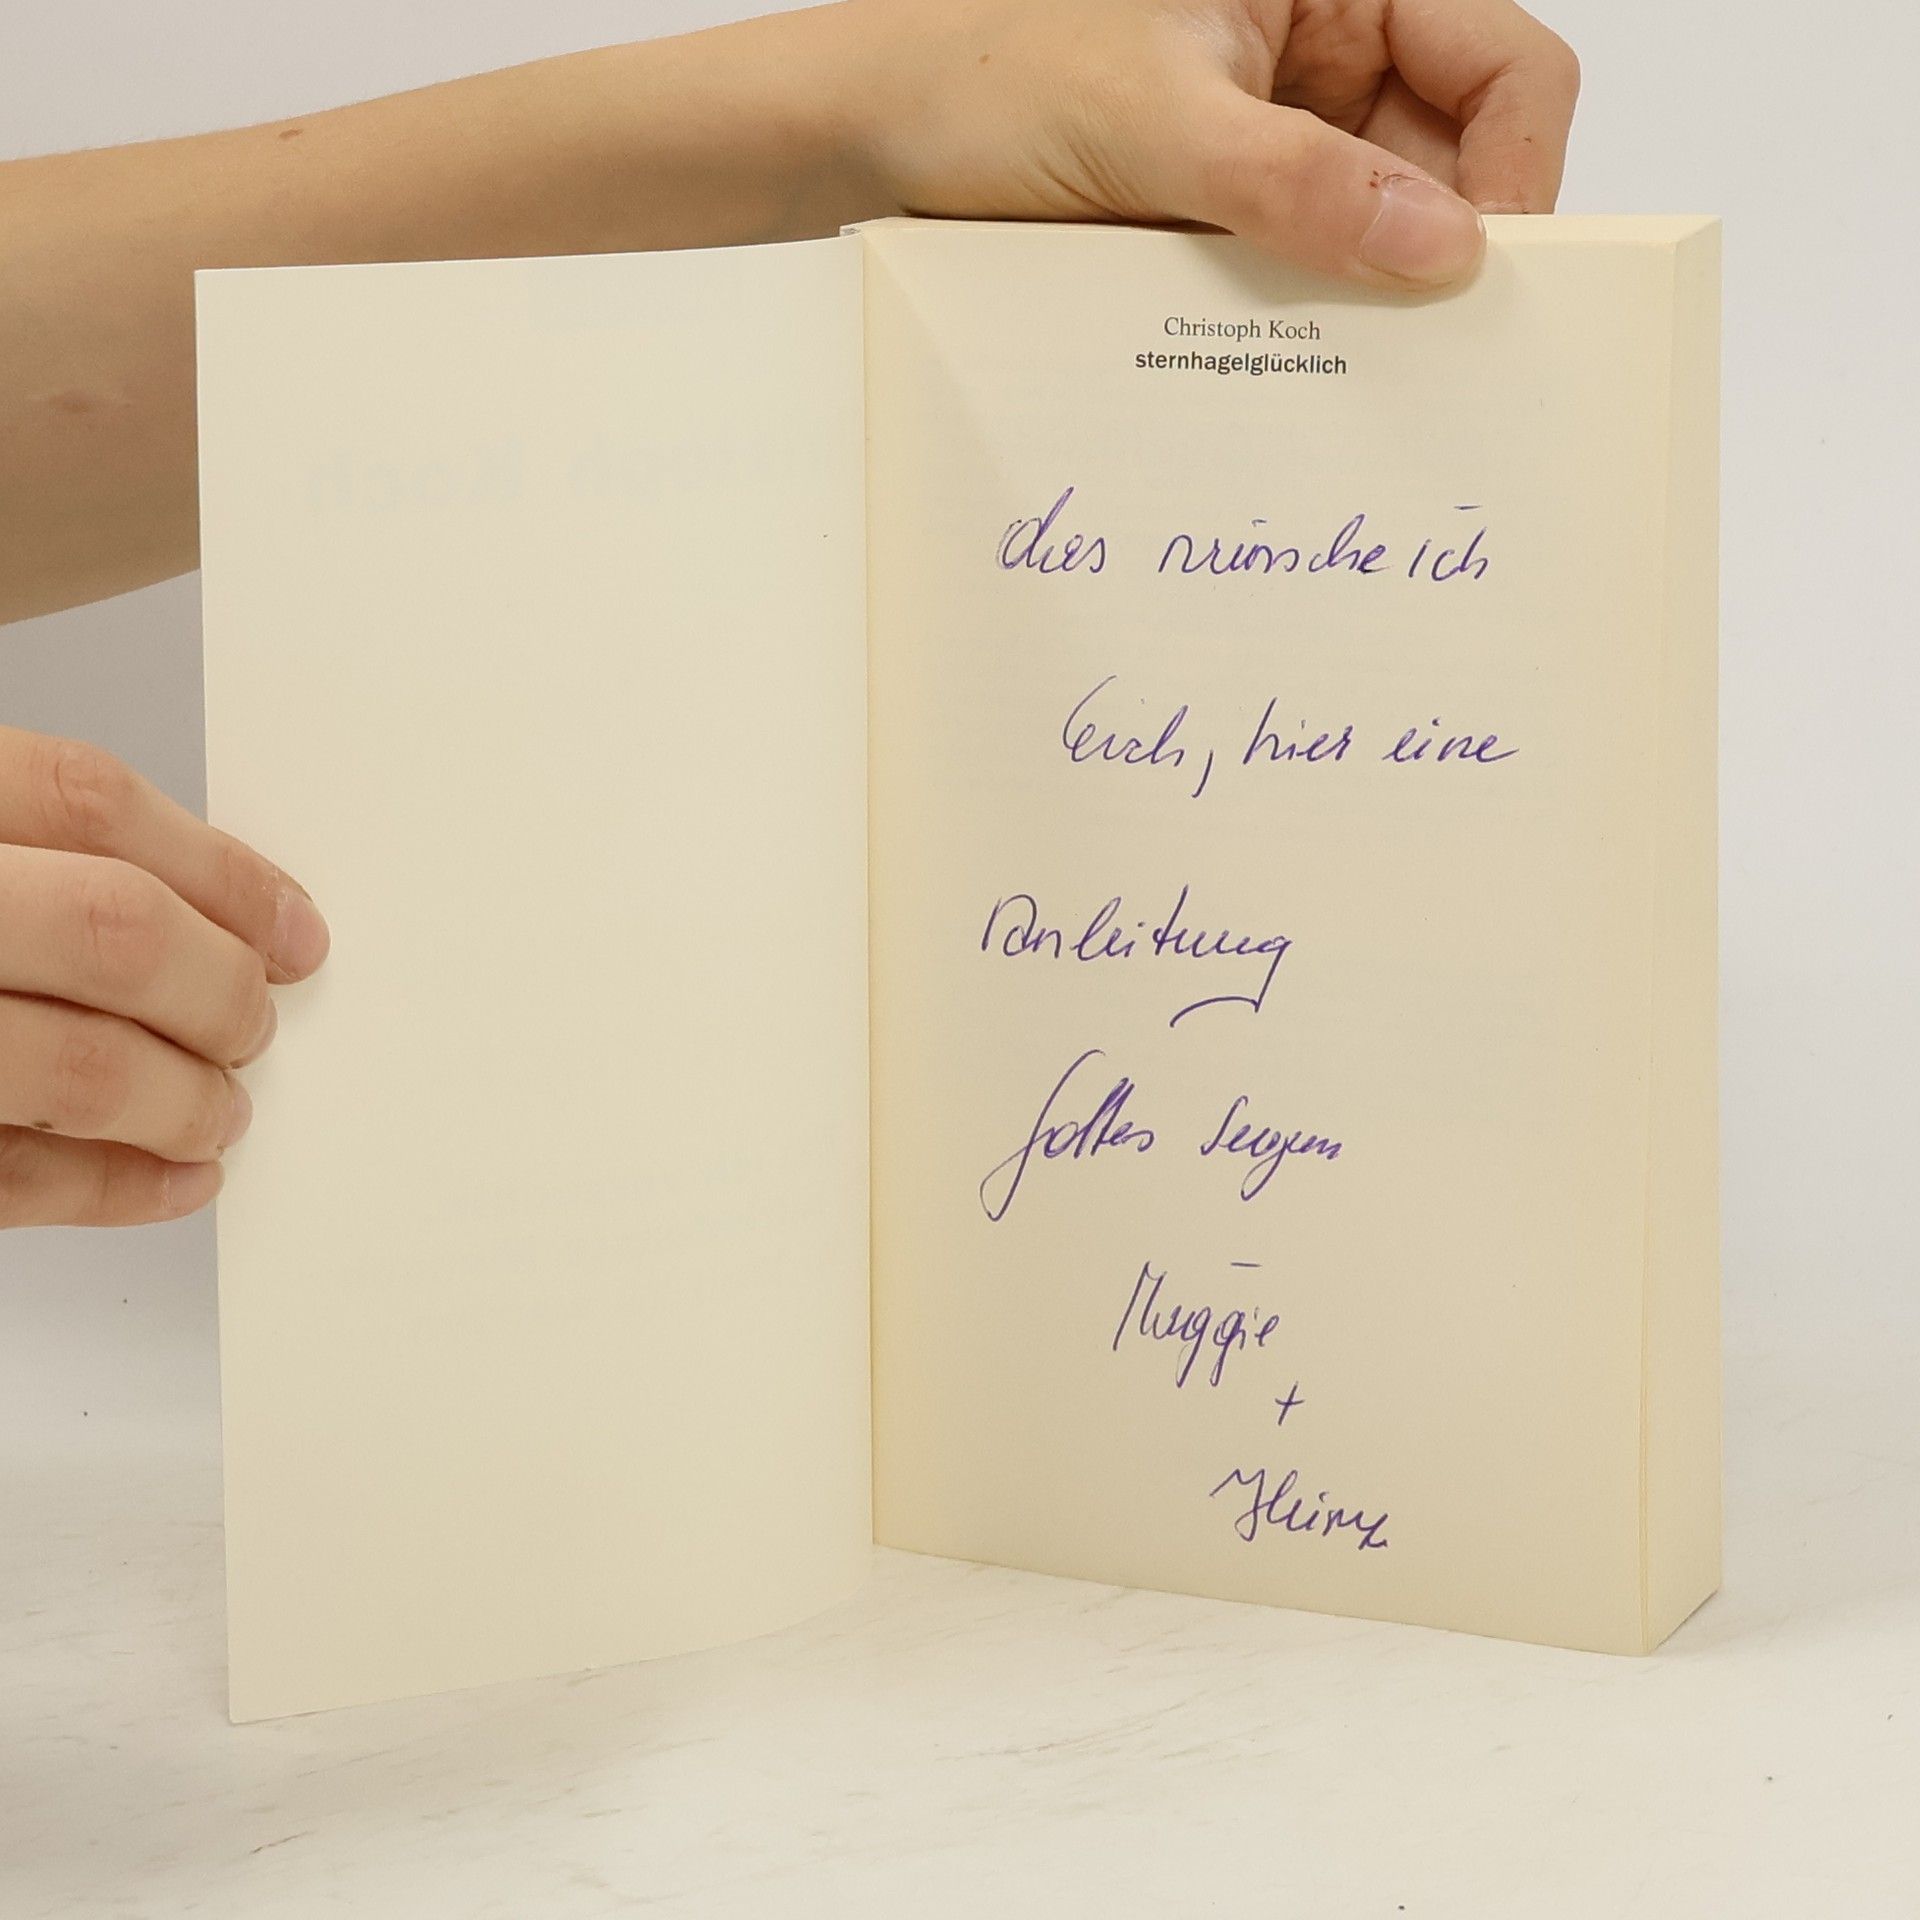 Christoph Koch
sternhagelglücklich
dies wünsche ich
Euch, hier eine
Anleitung
Gottes Segen
Muggie
+
Heinz